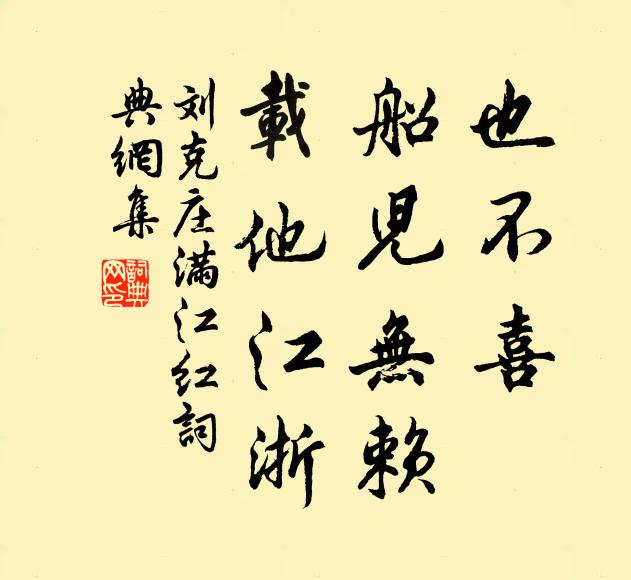 也不喜
船児無頼
載他江浙
刘克庄满江红詞
典網集
詞典网印